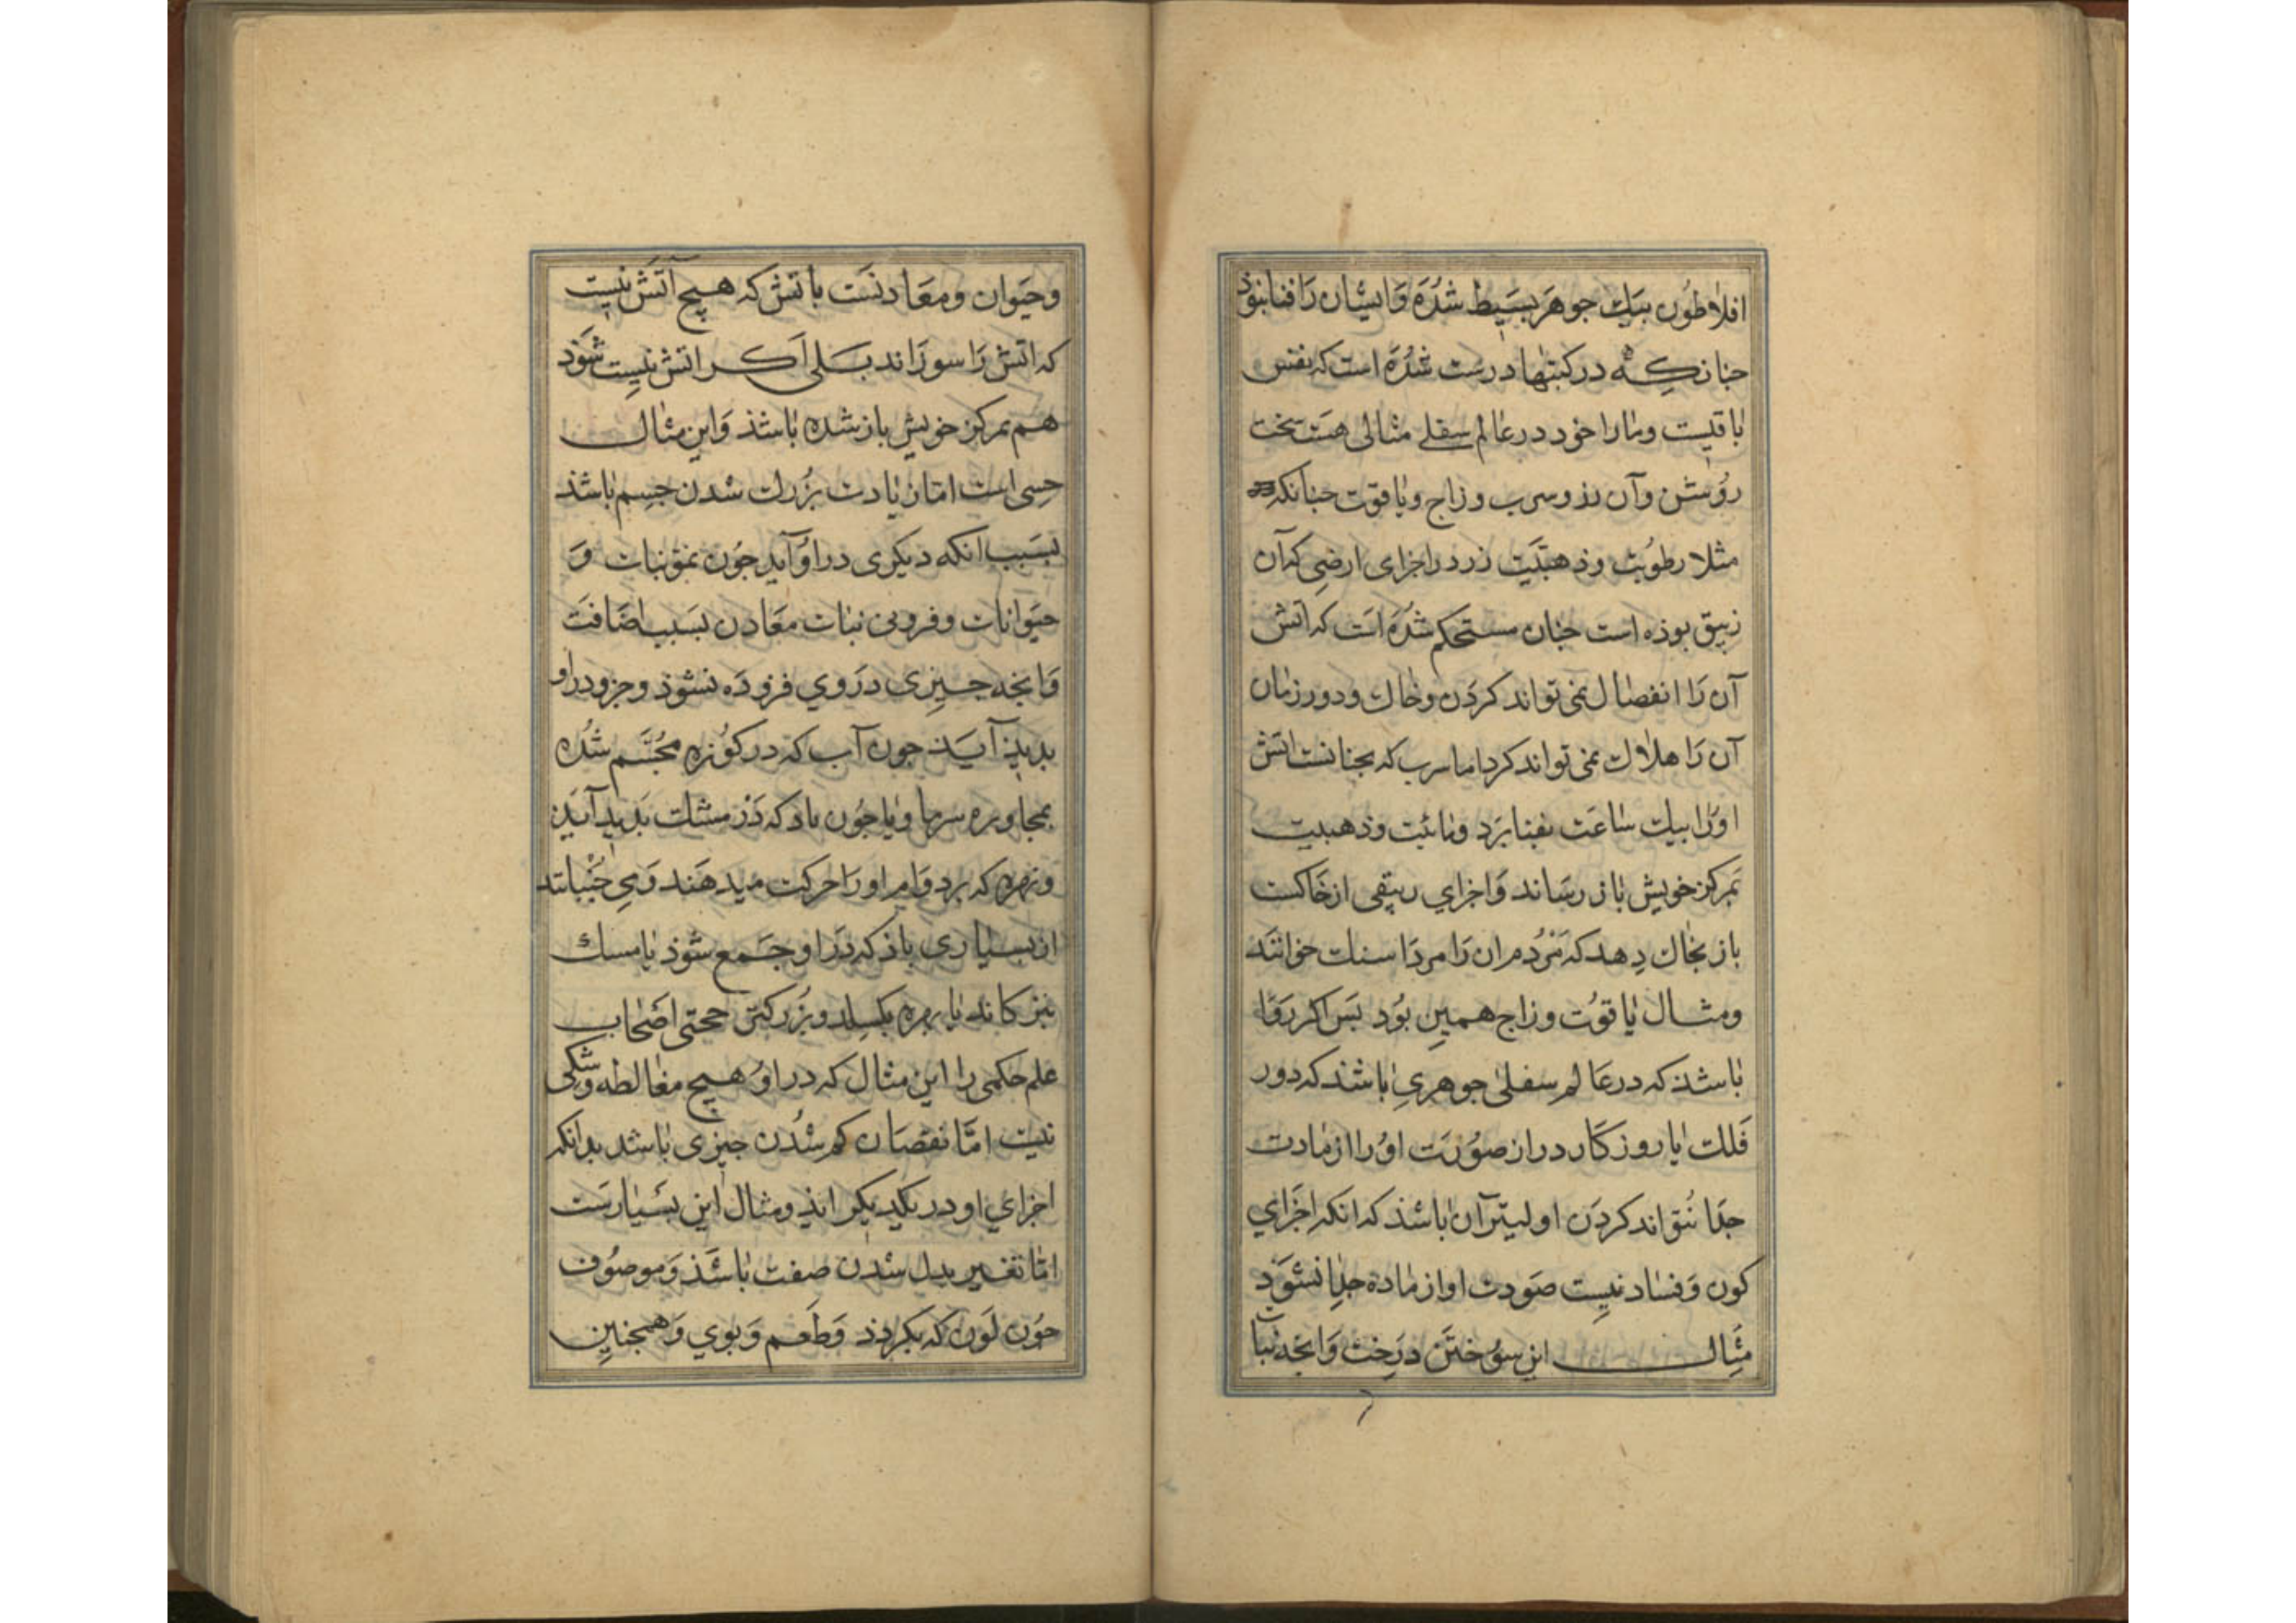 افلاطون بیک جوهر بسیط شده وایشان را فنا نبوذ
جنانکه در کتبها درست شده است که نفس
باقیست وما را خود در عالم سفلے مثالی هست سخت
روشن وآن زر وسرب وزاج ویاقوت جنانکه
مثلا رطوبت وذهبیّت زر در اجزای ارضی که آن
زیبق بوذه است جنان مستحکم شده است که آتش
آن را انفصال نمی تواند کردن وخاک ودور زمان
آن را هلاک نمی تواند کرد اما سرب که بجنانست اتش
او را بیک ساعت بفنا برد ومائیت وذهبیت
بمرکز خویش باز رساند واجزاي زیبقی از خاکست
باز بخاک دهد که مردمان را مرداسنک خوانند
ومثال یاقوت وزاج همین بود بس اکر روا
باشذ که در عالم سفلی جوهری باشذ که دور
فلک یا روزکار دراز صورت او را از مادت
جدا نتواند کردن اولیتر آن باشذ که انکه اجزاي
کون وفساد نیست صورت او از ماده جدا نشود
مثال این سوختن درخت وانجه نبات
وحیوان ومعادنست باتش که هیچ آتش نیست
که اتش را سوزاند بلی اکر اتش نیست شود
هم بمرکز خویش باز شده باشذ واین مثال
حسی است اما زیادت بزرک شدن جسم باشذ
بسبب انکه دیکری در او آید جون نمو نبات و
حیوانات وفزونی نبات معادن بسبب اضافت
وانجه جیزی در وي فزوده نشوذ وجزو در او
بدیذ آیذ جون آب که در کوزه مجسم شده
بمجاوره سرما ویا جون باد که در مشک بدید آید
وزهره که بر دوام او را حرکت میدهند ومی جنبانند
از بسیاری باذ که در او جمع شوذ یا مسک
بترکاند یا زهره بکسلد وبزرکتر حجتی اصحاب
علم حکمی را این مثال که در او هیچ مغالطه وشکی
نیست امّا نقصان کم شدن جیزی باشد بدانکه
اجزاي او در یکدیکر افتد ومثال این بسیارست
امّا تغییر بدل شدن صفت باشذ وموصوف
جون لون که بکردذ وطعم وبوي وهمجنین